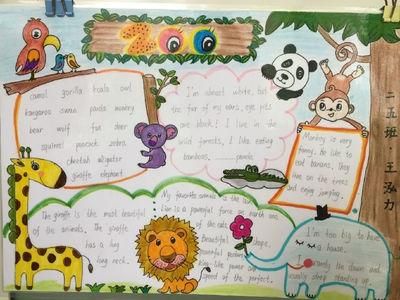 ZOO
camel gorilla koala owl
kangaroo swan panda monkey
bear wolf fox deer
squirrel peacock zebra
cheetah alligator
giraffe elephant
I'm almost white, but
the fur of my ears, eye pits
are black! I live in the
wild forests, I like eating
bamboos, ......panda
Monkey is very
funny. He like to
eat banana. They
live on the trees
and enjoy jumping.
二五班 王泓力
The giraffe is the most beautiful
of the animals. The giraffe
has a big
long neck.
My favorite animals is the lion
Lion is a powerful force on earth one
of the cats.
Beautiful shape,
powerful
king-like power and
speed of the perfect.
I'm too big to have
a house.
I rarely lie down and
usually sleep standing up.